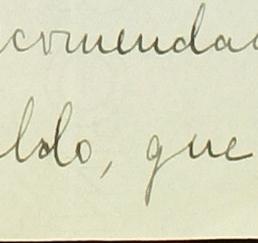 comenda
ldo, que